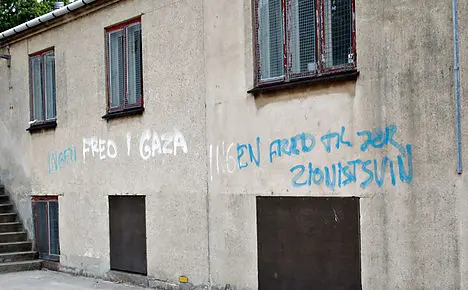 INGEN FRED I GAZA
INGEN FRED TIL JER
ZIONISTSVIN